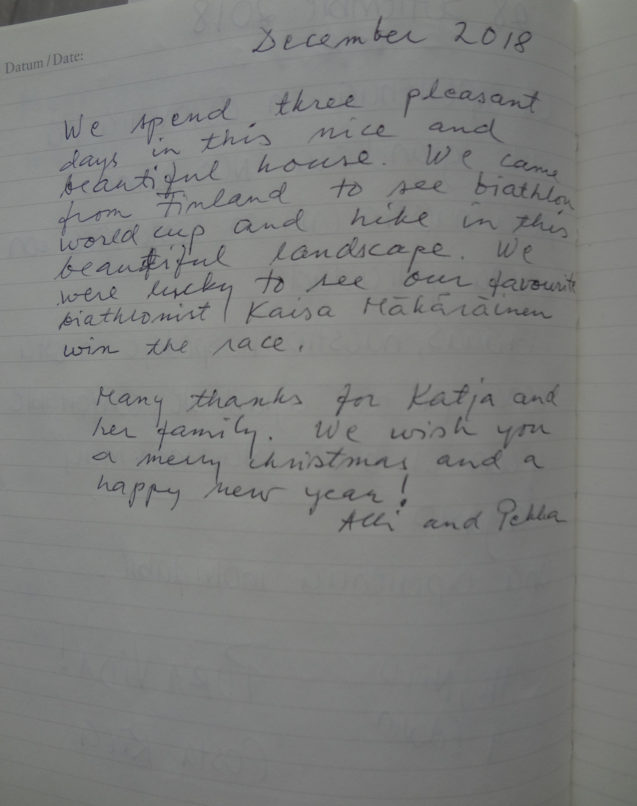 Datum / Date:
December 2018
We spend three pleasant
days in this nice and
beautiful house. We came
from Finland to see biathlon
world cup and hike in this
beautiful landscape. We
were lucky to see our favourite
biathlonist Kaisa Mäkäräinen
win the race.
Many thanks for Katja and
her family. We wish you
a merry christmas and a
happy new year!
Alli and Pekka